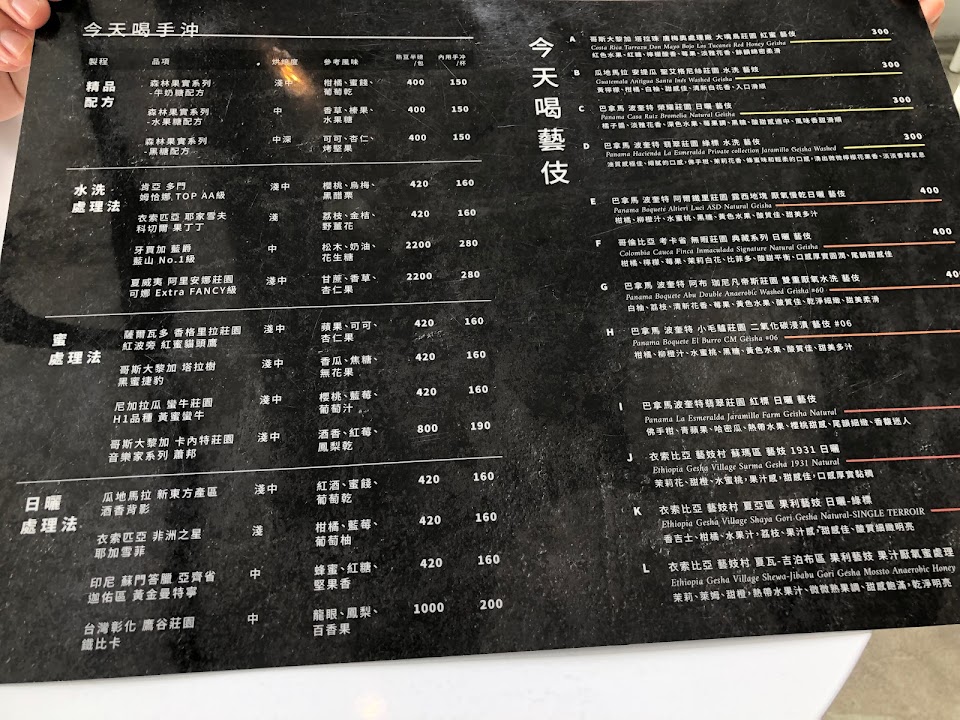 今天喝手沖
製程 品項 烘焙度 參考風味 熟豆半磅/包 內用手沖/杯
精品配方
森林果實系列 淺中 柑橘、蜜餞、 400 150
-牛奶糖配方 葡萄乾
森林果實系列 中 香草、榛果、 400 150
-水果糖配方 水果糖
森林果實系列 中深 可可、杏仁、 400 150
-黑糖配方 烤堅果
水洗處理法
肯亞 多門 淺中 櫻桃、烏梅、 420 160
姆恰娜 TOP AA級 黑醋果
衣索匹亞 耶家雪夫 淺 荔枝、金桔、 420 160
科切爾 果丁丁 野薑花
牙買加 藍爵 中 松木、奶油、 2200 280
藍山 No.1級 花生糖
夏威夷 阿里安娜莊園 淺中 甘蔗、香草、 2200 280
可娜 Extra FANCY級 杏仁果
蜜處理法
薩爾瓦多 香格里拉莊園 淺中 蘋果、可可、 420 160
紅波旁 紅蜜貓頭鷹 杏仁果
哥斯大黎加 塔拉樹 淺中 香瓜、焦糖、 420 160
黑蜜捷豹 無花果
尼加拉瓜 蠻牛莊園 淺中 櫻桃、藍莓、 420 160
H1品種 黃蜜蠻牛 葡萄汁
哥斯大黎加 卡內特莊園 淺中 酒香、紅莓、 800 190
音樂家系列 蕭邦 鳳梨乾
日曬處理法
瓜地馬拉 新東方產區 淺中 紅酒、蜜餞、 420 160
酒香背影 葡萄乾
衣索匹亞 非洲之星 淺 柑橘、藍莓、 420 160
耶加雪菲 葡萄柚
印尼 蘇門答臘 亞齊省 中 蜂蜜、紅糖、 420 160
迦佑區 黃金曼特寧 堅果香
台灣彰化 鷹谷莊園 中 龍眼、鳳梨、 1000 200
鐵比卡 百香果
今天喝藝伎
A 哥斯大黎加 塔拉珠 唐梅奧處理廠 大嘴鳥莊園 紅蜜 藝伎 300
Costa Rica Tarrazu Don Mayo Bojo Los Tucanes Red Honey Geisha
紅色水果、紅糖、檸檬酸香、莓果、淡雅花香、餘韻綿密柔滑
B 瓜地馬拉 安提瓜 聖艾格尼絲莊園 水洗 藝妓 300
Guatemala Antigua Santa Inés Washed Geisha
黃檸檬、柑橘、白柚、甜感佳、清新白花香、入口滑順
C 巴拿馬 波奎特 榮耀莊園 日曬 藝伎 300
Panama Casa Ruiz Bromelia Natural Geisha
橘子醬、淡雅花香、深色水果、莓果調、黑糖、酸甜感適中、風味香甜滑順
D 巴拿馬 波奎特 翡翠莊園 綠標 水洗 藝伎 300
Panama Hacienda La Esmeralda Private collection Jaramillo Geisha Washed
E 巴拿馬 波奎特 阿爾鐵里莊園 露西地塊 厭氧慢乾日曬 藝伎 400
Panama Boquete Altieri Luci ASD Natural Geisha
柑橘、柳橙汁、水蜜桃、黑糖、黃色水果、酸質佳、甜美多汁
F 哥倫比亞 考卡省 無暇莊園 典藏系列 日曬 藝伎 400
Colombia Cauca Finca Inmaculada Signature Natural Geisha
柑橘、檸檬、莓果、茉莉白花、比菲多、酸甜平衡、口感厚實圓潤、尾韻甜感佳
G 巴拿馬 波奎特 阿布 珈尼凡帝斯莊園 雙重厭氧水洗 藝伎 400
Panama Boquete Abu Double Anaerobic Washed Geisha #60
白柚、荔枝、清新花香、莓果、黃色水果、酸質佳、乾淨細緻、甜美柔滑
H 巴拿馬 波奎特 小毛驢莊園 二氧化碳浸漬 藝伎 #06
Panama Boquete El Burro CM Geisha #06
柑橘、柳橙汁、水蜜桃、黑糖、黃色水果、酸質佳、甜美多汁
I 巴拿馬波奎特翡翠莊園 紅標 日曬 藝伎
Panama La Esmeralda Jaramillo Farm Geisha Natural
佛手柑、青蘋果、哈密瓜、熱帶水果、櫻桃甜感、尾韻細緻、香馥迷人
J 衣索比亞 藝妓村 蘇瑪區 藝妓 1931 日曬
Ethiopia Gesha Village Surma Gesha 1931 Natural
茉莉花、甜橙、水蜜桃、果汁感、甜感佳、口感厚實黏稠
K 衣索比亞 藝妓村 夏亞區 果利藝妓 日曬-綠標
Ethiopia Gesha Village Shaya Gori Gesha Natural-SINGLE TERROIR
香吉士、柑橘、水果汁、荔枝、果汁感、甜感佳、酸質細緻明亮
L 衣索比亞 藝妓村 夏瓦-吉泊布區 果利藝妓 果汁厭氧蜜處理
Ethiopia Gesha Village Shewa-Jibabu Gori Gesha Mossto Anaerobic Honey
茉莉、萊姆、甜橙、熱帶水果汁、微微熱果調、甜感飽滿、乾淨明亮